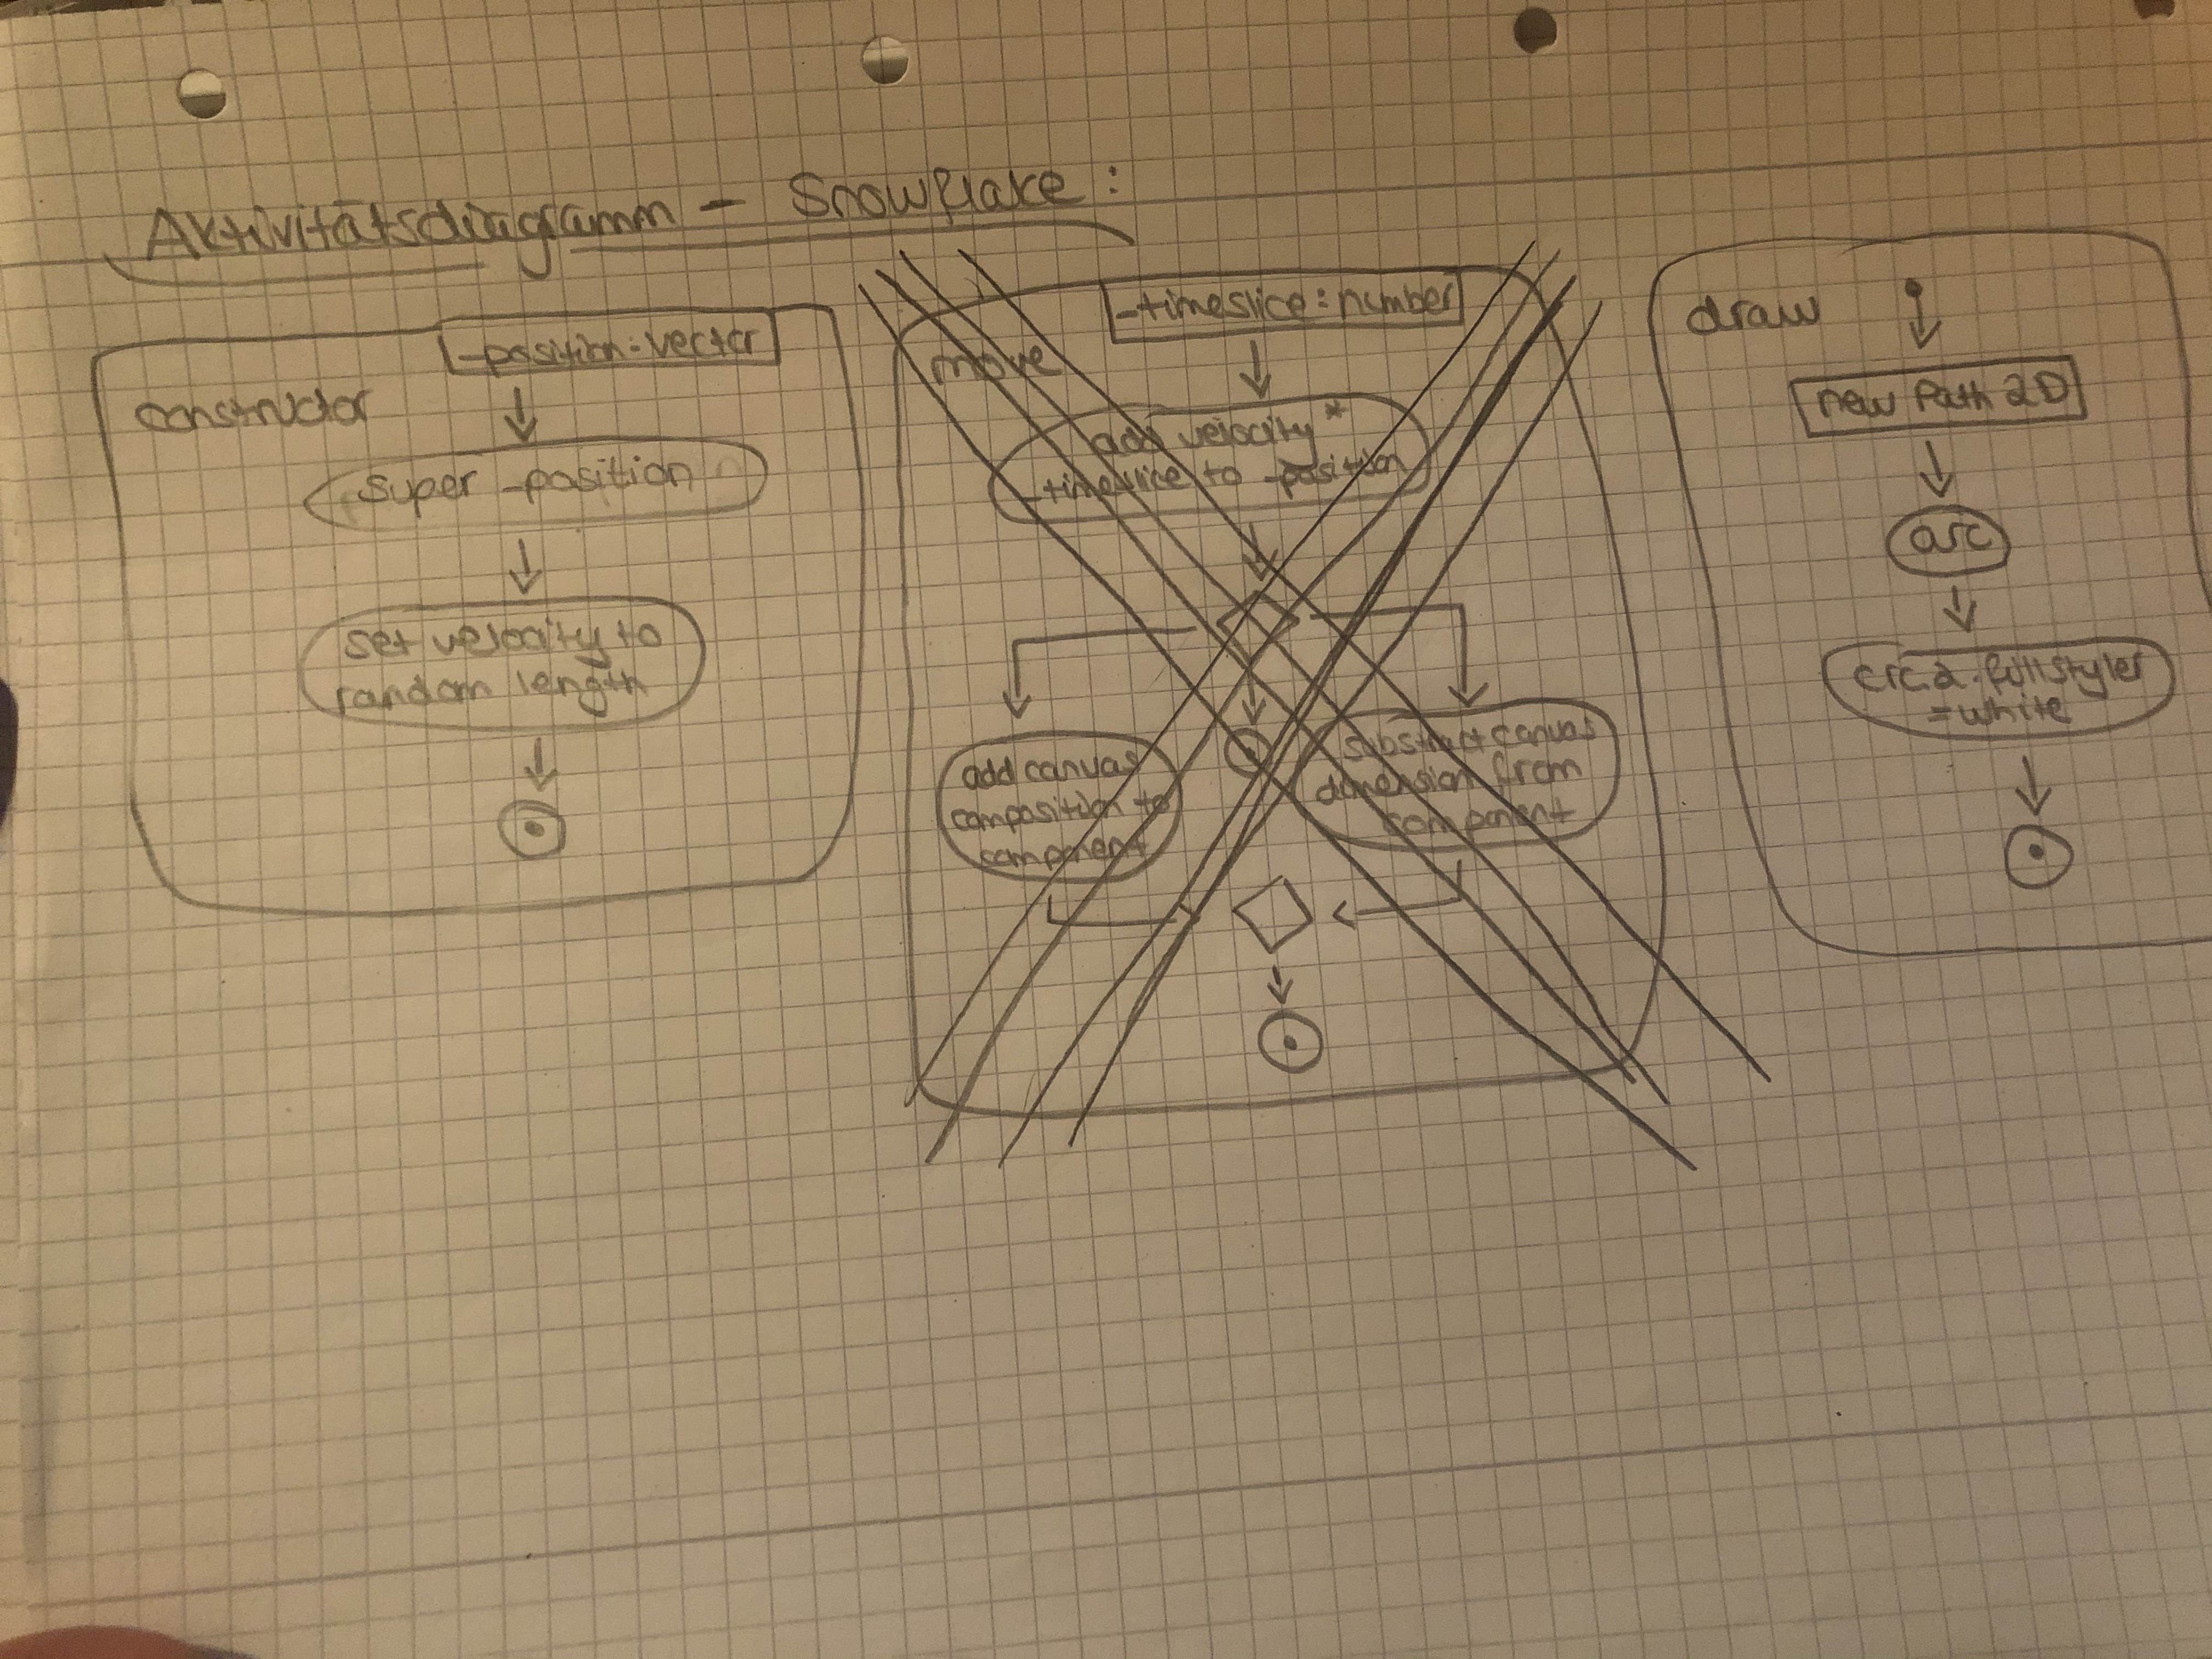 Aktivitätsdiagramm - Snowflake:
constructor
-position: vector
super -position
Set velocity to
random length
move
-timeslice: number
add velocity *
-timeslice to -position
add canvas
composition to
component
substract canvas
dimension from
component
draw
new Path 2D
arc
crc2.fillStyler
=white